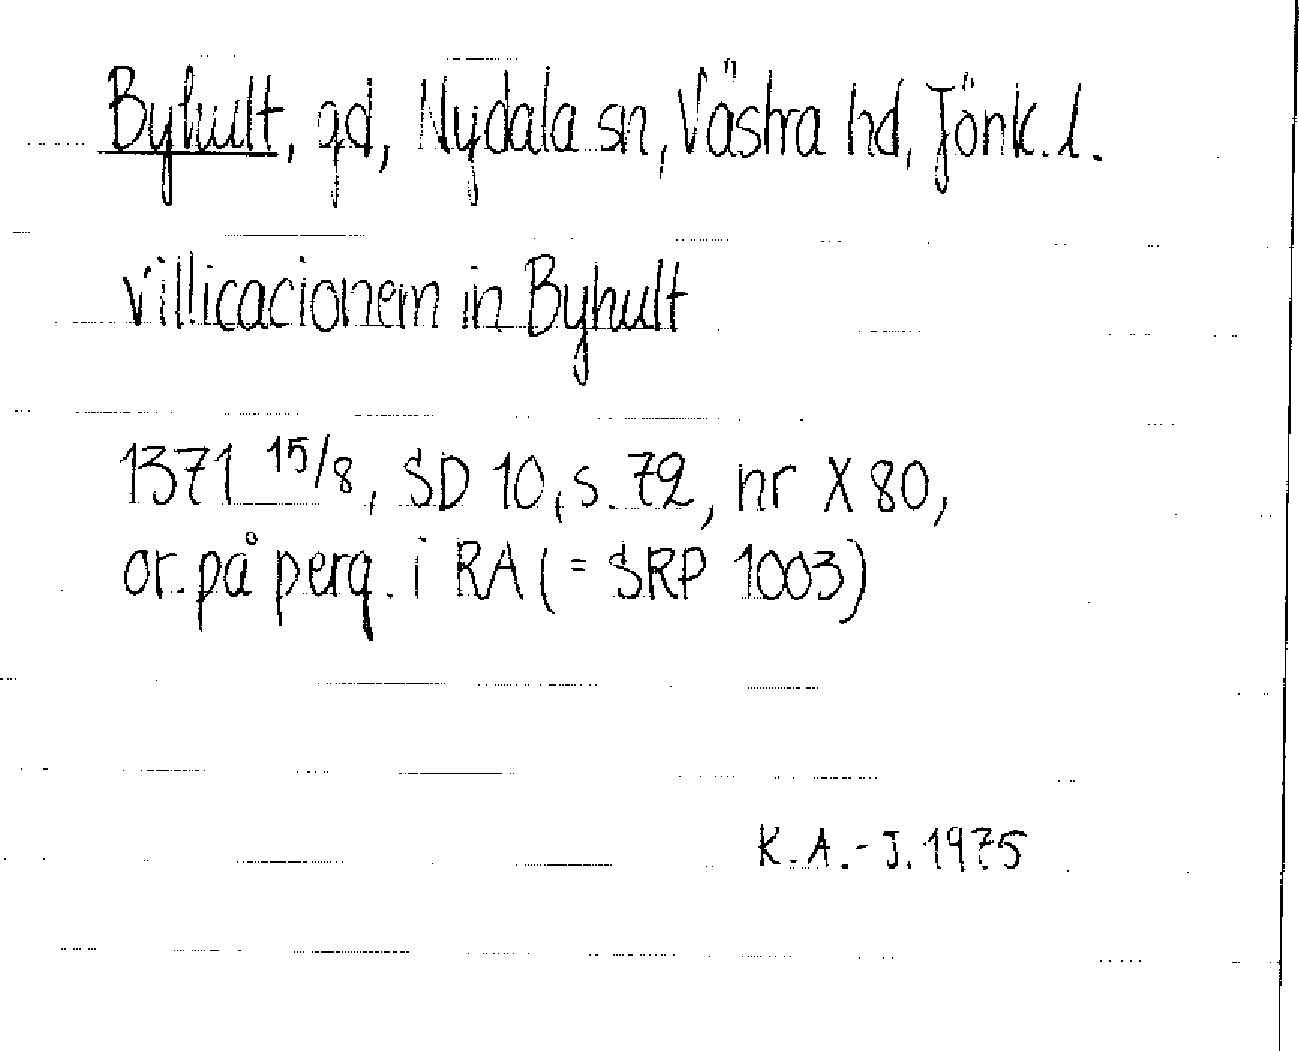 Byhult, gd, Nydala sn, Västra hd, Jönk. l.
villicacionem in Byhult
1371 15/8, SD 10, s. 72, nr X 80,
or. på perg. i RA (= SRP 1003)
K. A.-J. 1975